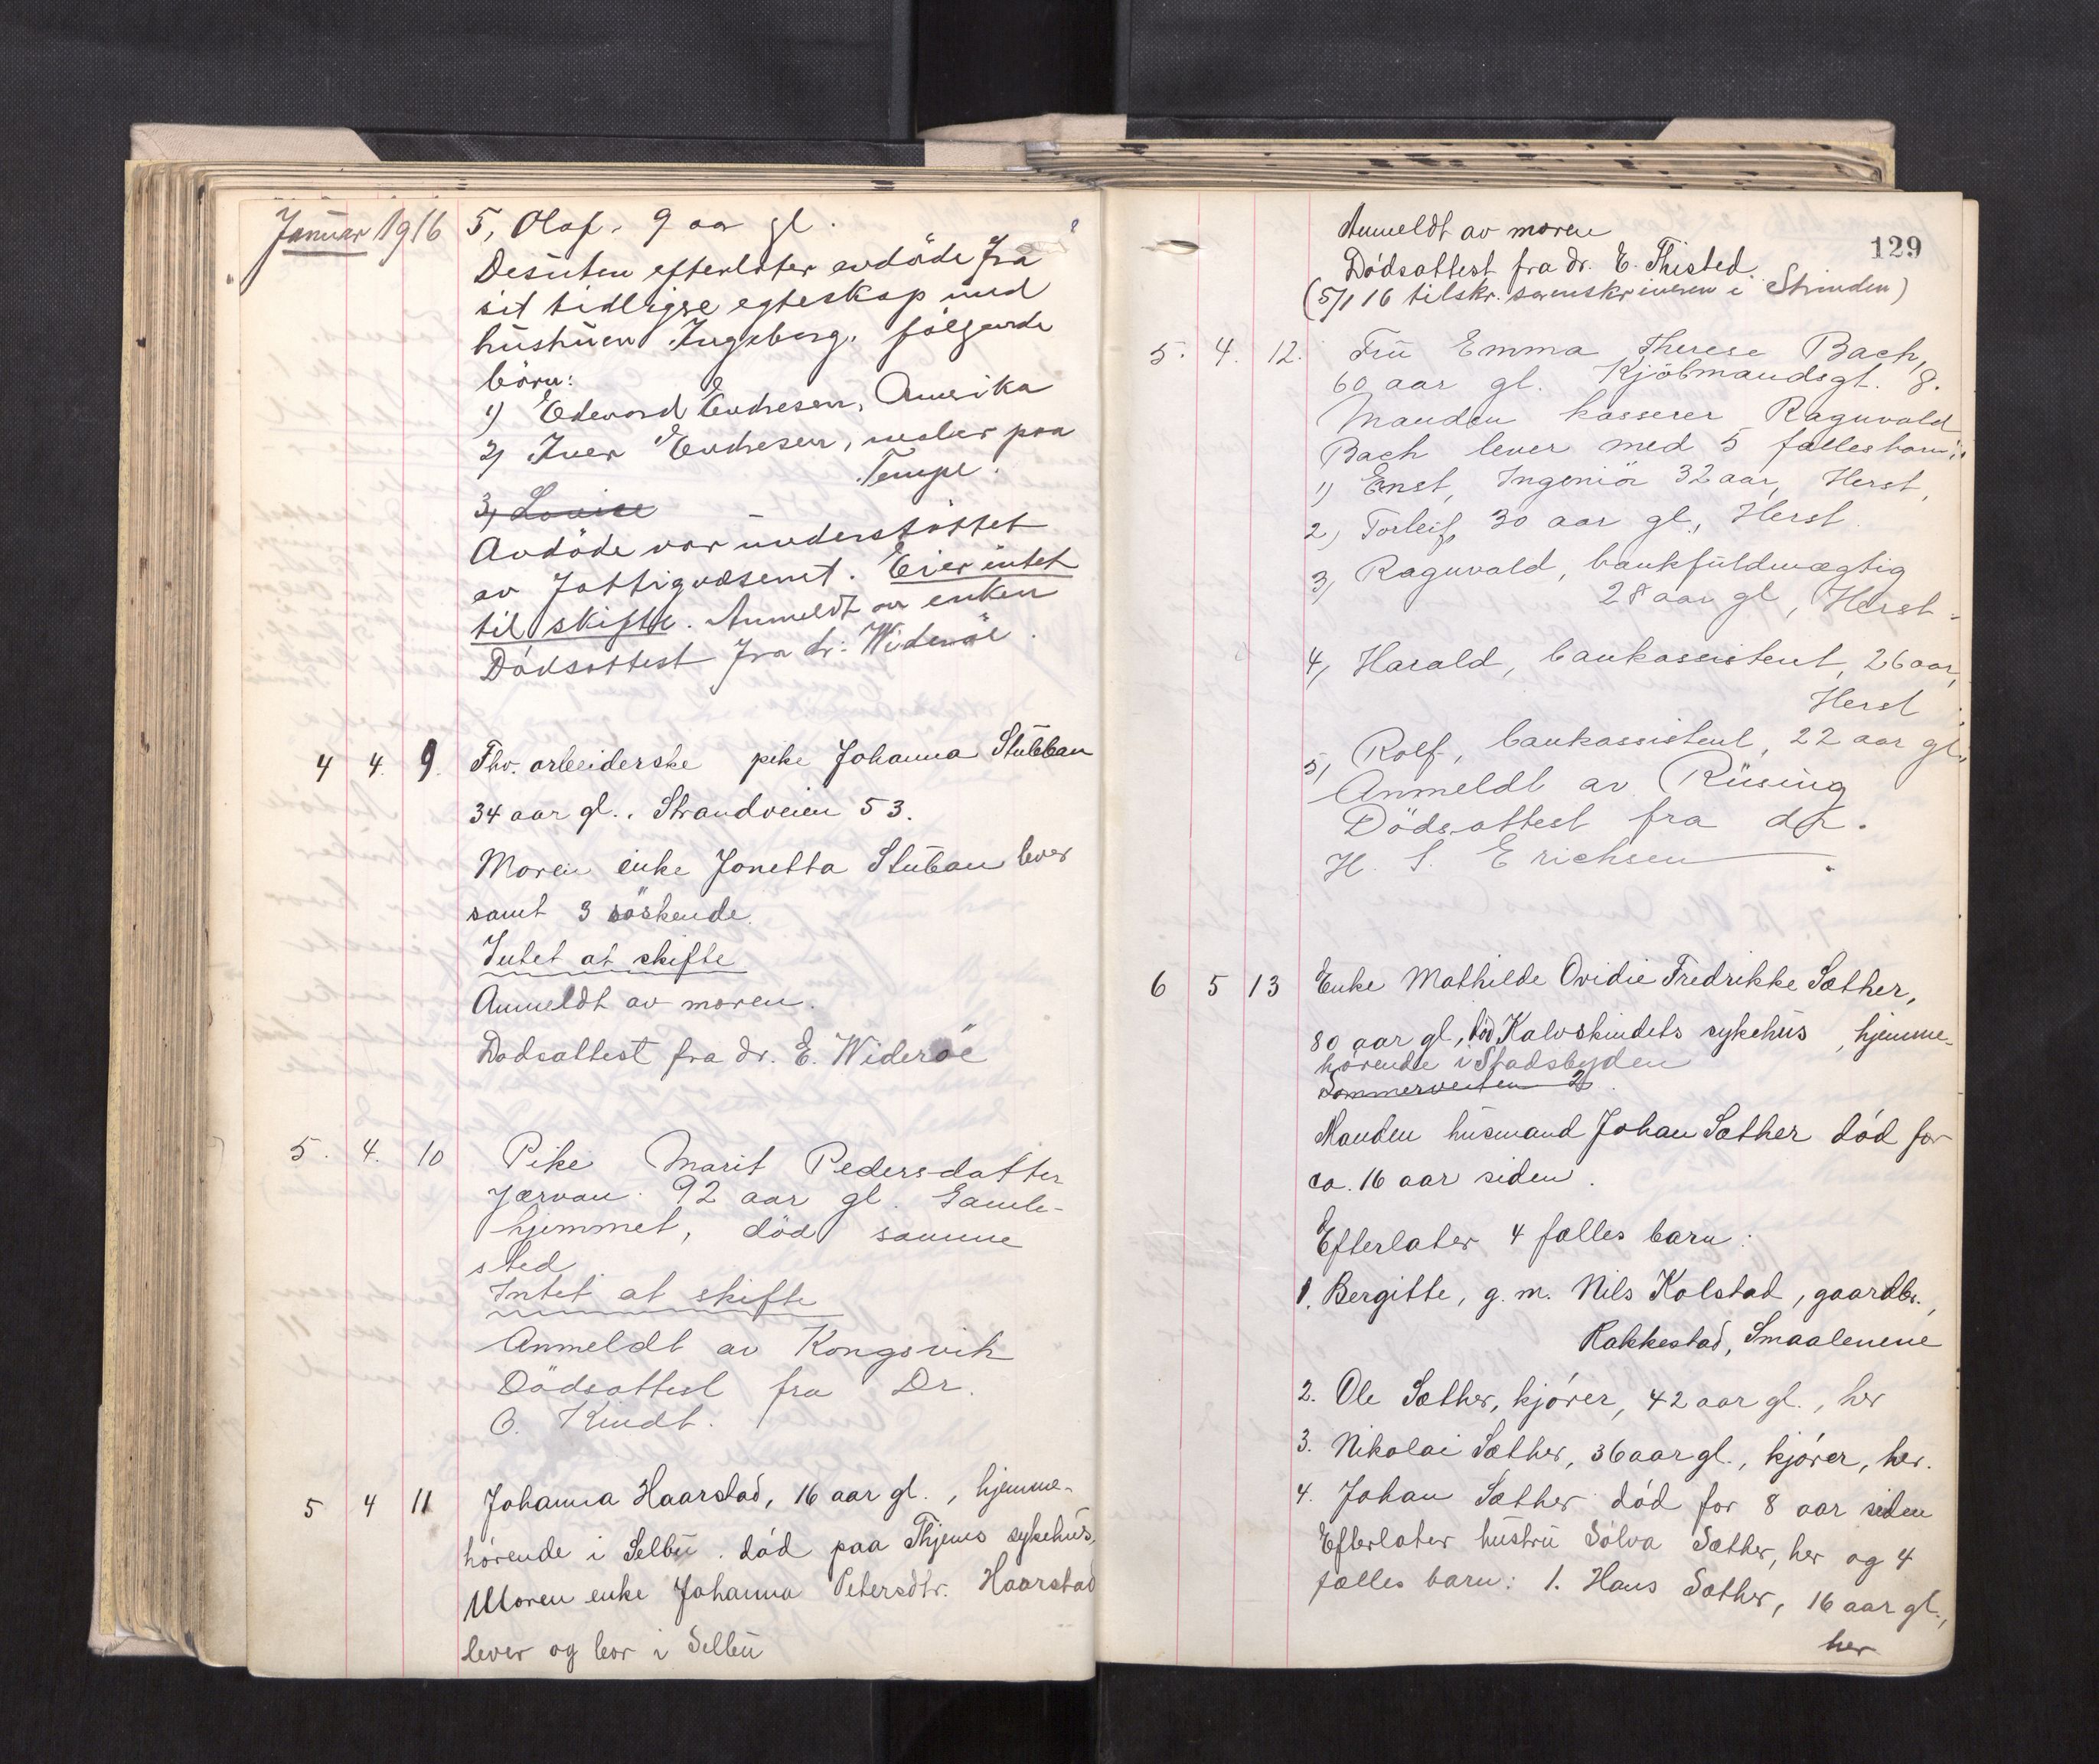 Januar 1916
5, Olaf, 9 aar gl.
Desuten efterlater avdöde fra
sit tidligere egteskap med
hustruen Ingeborg, fölgende
börn:
1) Edevard Endresen, Amerika
2) Iver Endresen, maler paa
Tempe.
3, Louise
Avdöde var understöttet
av Fattigvæsenet. Eier intet
til skifte. Anmeldt av enken
Dödsattest fra dr. Wideröe.
4 4. 9. Fhv. arbeiderske pike Johanna Stubban
34 aar gl., Strandveien 53.
Moren enke Jonetta Stuban lever
samt 3 söskende.
Intet at skifte
Anmeldt av moren.
Dødsattest fra dr. E. Wideröe
5. 4. 10 Pike Marit Pedersdatter
Jærvan. 92 aar gl. Gamle-
hjemmet, död samme
sted
Intet at skifte
Anmeldt av Kongsvik
Dödsattest fra Dr.
O. Kindt.
5 4 11 Johanna Haarstad, 16 aar gl., hjemme-
hörende i Selbu. död paa Thjems sykehus.
Moren enke Johanna Petersdtr. Haarstad
lever og bor i Selbu
129
Anmeldt av moren
Dödsattest fra dr. E. Thisted.
(5/1 16 tilskr. sorenskriveren i Strinden)
5. 4. 12. Fru Emma Therese Bach,
60 aar gl. Kjöbmandsgt. 8.
Manden kasserer Ragnvald
Bach lever med 5 fællesbarn:
1) Enst, Ingeniör 32 aar, Herst,
2, Torleif, 30 aar gl., Herst
3, Ragnvald, bankfuldmægtig
28 aar gl, Herst.
4, Harald, bankassistent, 26 aar,
Herst
5, Rolf, bankassistent, 22 aar gl.,
Anmeldt av Rüsing
Dödsattest fra dr.
H. S. Erichsen
6 5 13 Enke Mathilde Ovidie Fredrikke Sæther,
80 aar gl., död Kalvskindets sykehus, hjemme-
hørende i Stadsbygden
Sommerveiten 2.
Manden husmand Johan Sæther död for
ca. 16 aar siden.
Efterlater 4 fælles barn:
1. Bergitte, g. m. Nils Kolstad, gaardbr.,
Rakkestad, Smaalenene
2. Ole Sæther, kjörer, 42 aar gl., her
3. Nikolai Sæther, 36 aar gl., kjörer, her.
4. Johan Sæther död for 8 aar siden
Efterlater hustru Sölva Sæther, her og 4
fælles barn: 1. Hans Sæther, 16 aar gl.,
her